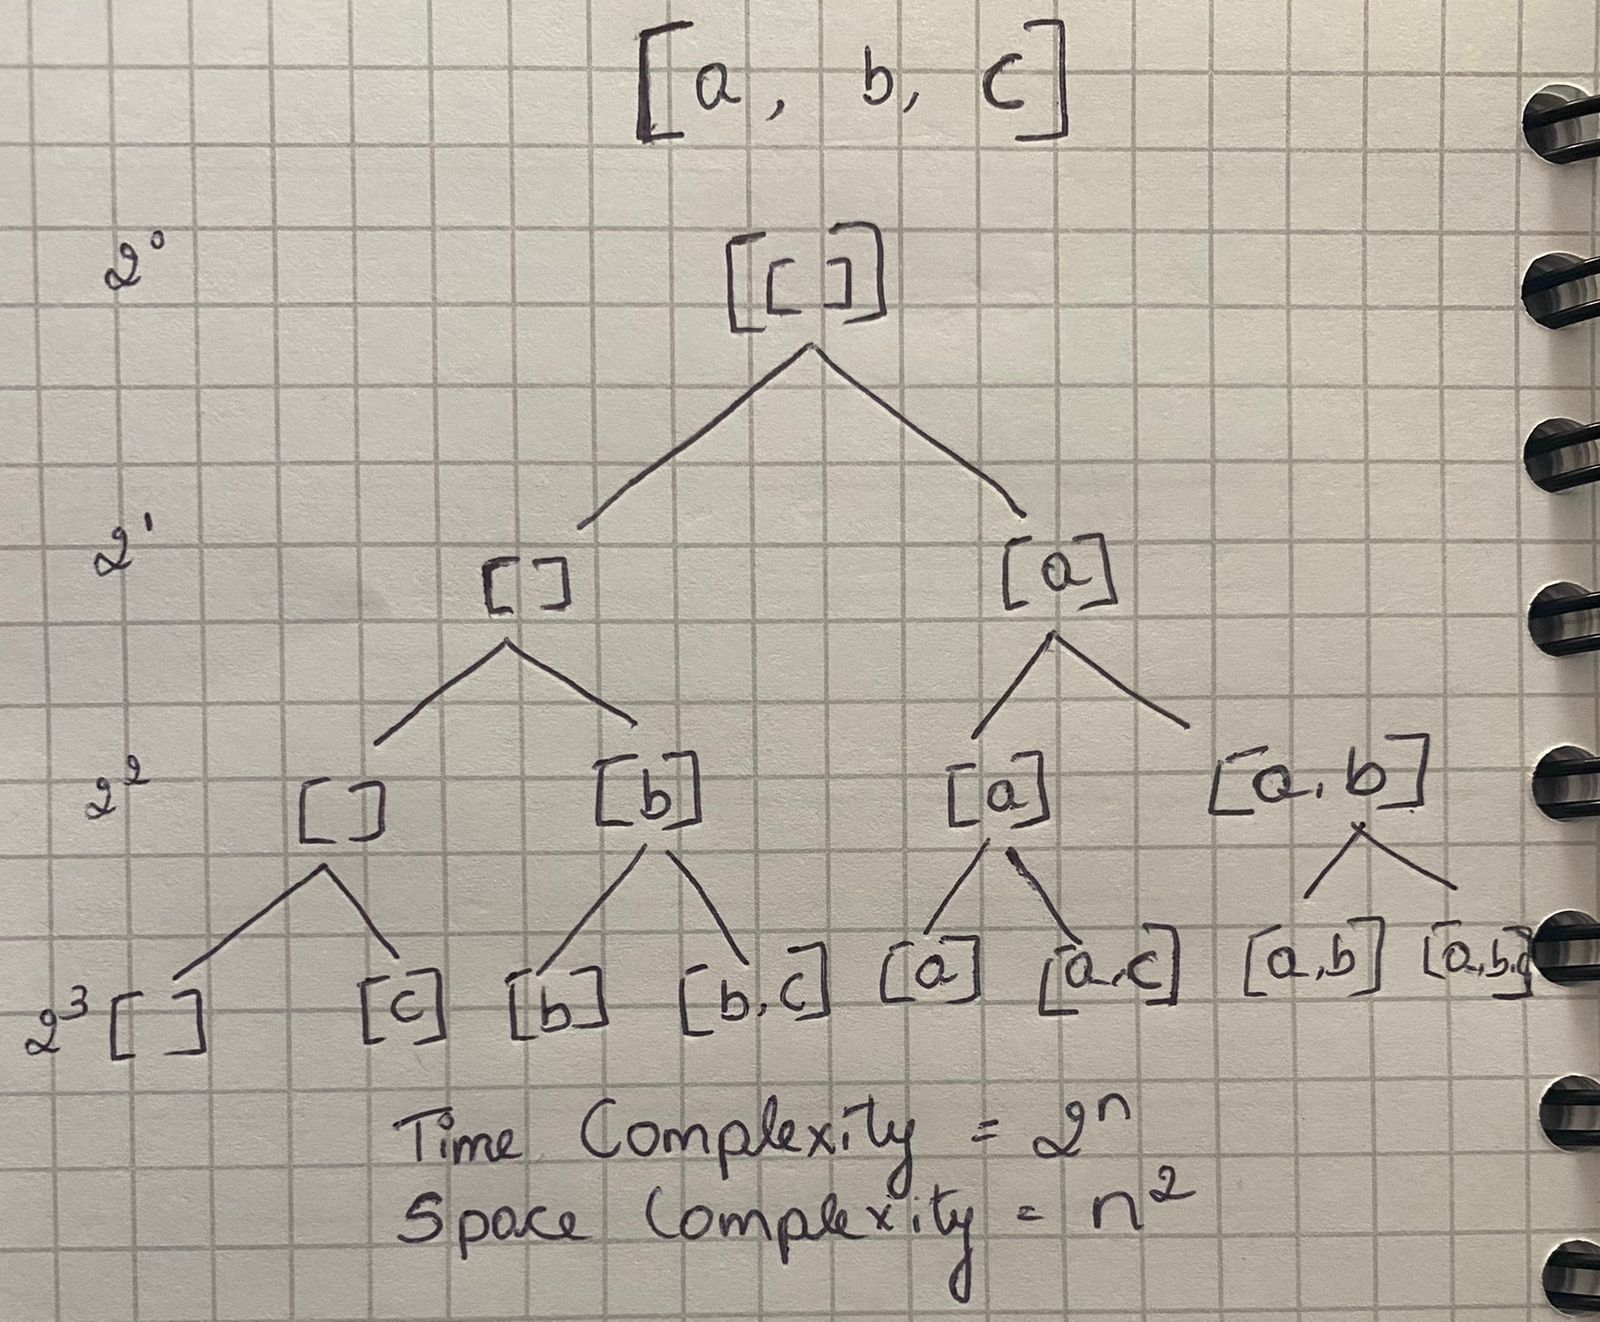 [a, b, c]
2⁰ [[ ]]
2¹ [ ] [a]
2² [ ] [b] [a] [a, b]
2³ [ ] [c] [b] [b, c] [a] [a, c] [a, b] [a, b, c]
Time Complexity = 2ⁿ
Space Complexity = n²